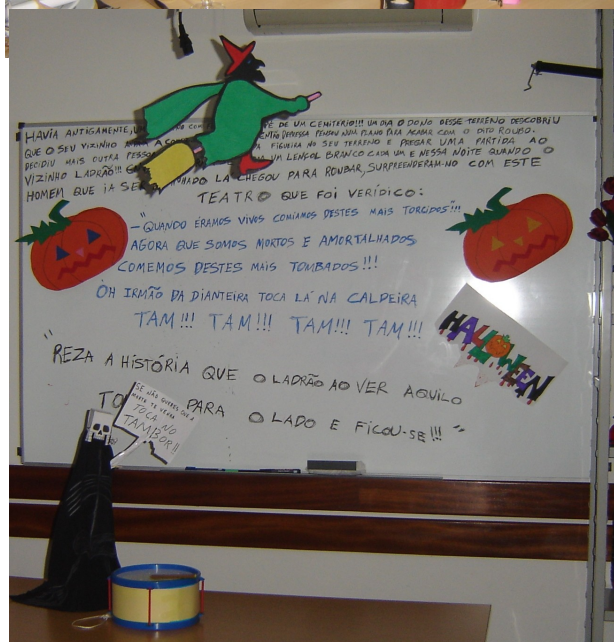 HAVIA ANTIGAMENTE, DE UM CEMITÉRIO!!! UM DIA O DONO DESSE TERRENO DESCOBRIU
QUE O SEU VIZINHO DEPRESSA PENSOU NUM PLANO PARA ACABAR COM O DITO ROUBO.
DECIDIU MAIS OUTRA PESSOA FIGUEIRA NO SEU TERRENO E PREGAR UMA PARTIDA AO
VIZINHO LADRÃO!!! UM LENSOL BRANCO CADA UM E NESSA NOITE QUANDO O
HOMEM QUE IA SER LÁ CHEGOU PARA ROUBAR, SURPREENDERAM-NO COM ESTE
TEATRO QUE FOI VERÍDICO:
"
— QUANDO ÉRAMOS VIVOS COMÍAMOS DESTES MAIS TORCIDOS!!!
AGORA QUE SOMOS MORTOS E AMORTALHADOS
COMEMOS DESTES MAIS TOMBADOS!!!
ÓH IRMÃO DA DIANTEIRA TOCA LÁ NA CALDEIRA
TAM!!! TAM!!! TAM!!! TAM!!!
"
REZA A HISTÓRIA QUE O LADRÃO AO VER AQUILO
PARA O LADO E FICOU-SE!!! "
HALLOWEEN
SE NÃO QUERES QUE A
MORTE TE VENHA
TOCA NO
TAMBOR!!